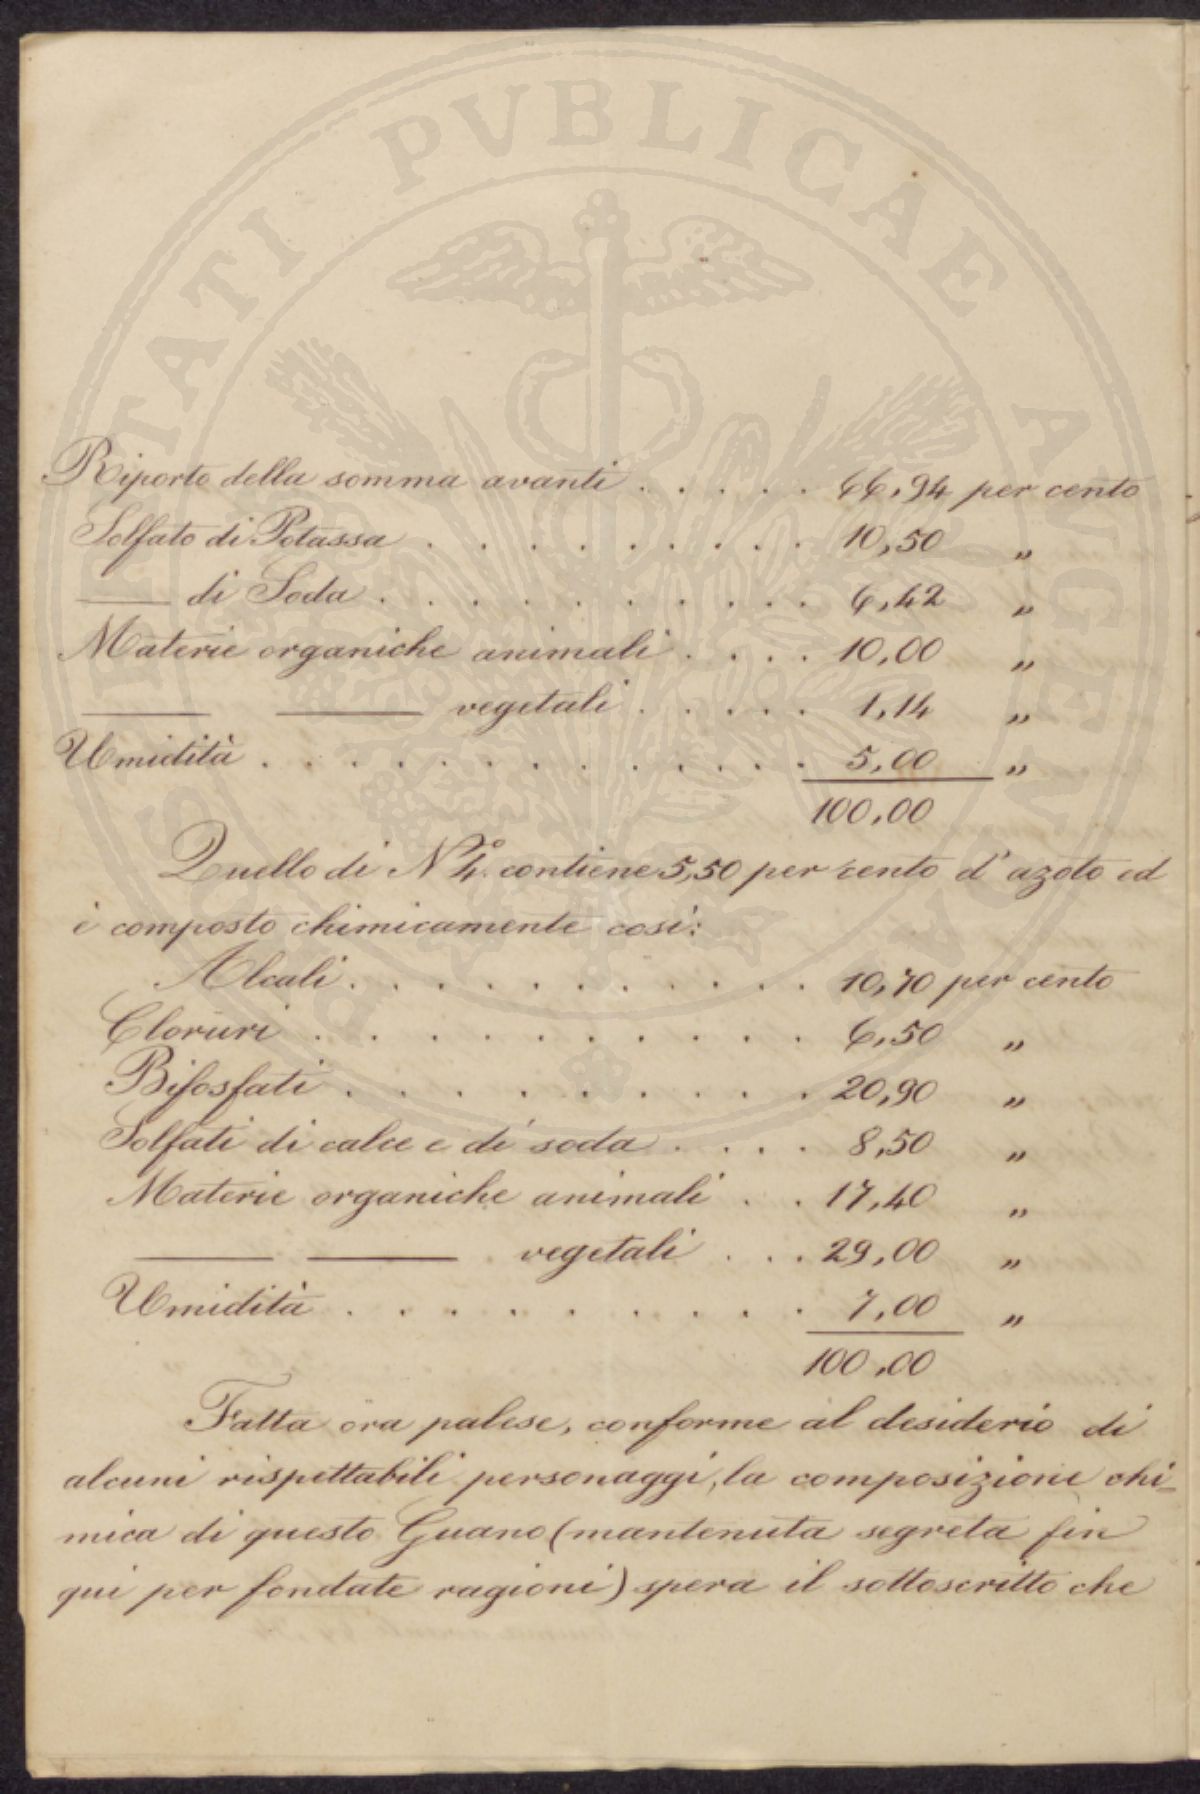 PROSPERITATI PVBLICAE AVGENDAE
Riporto della somma avanti . . . . . 66,94 per cento
Solfato di Potassa . . . . . . . . . 10,50 „
—— di Soda . . . . . . . . . . 6,42 „
Materie organiche animali . . . . 10,00 „
—— —— vegetali . . . . . 1,14 „
Umidità . . . . . . . . . . . . . 5,00 „
100,00
Quello di N.º 4. contiene 5,50 per cento d'azoto ed
è composto chimicamente così:
Alcali . . . . . . . . . . . 10,70 per cento
Cloruri . . . . . . . . . . . 6,50 „
Bifosfati . . . . . . . . . . 20,90 „
Solfati di calce e di soda . . . . 8,50 „
Materie organiche animali . . 17,40 „
—— —— vegetali . . . 29,00 „
Umidità . . . . . . . . . . 7,00 „
100,00
Fatta ora palese, conforme al desiderio di
alcuni rispettabili personaggi, la composizione chi-
mica di questo Guano (mantenuta segreta fin
qui per fondate ragioni) spera il sottoscritto che